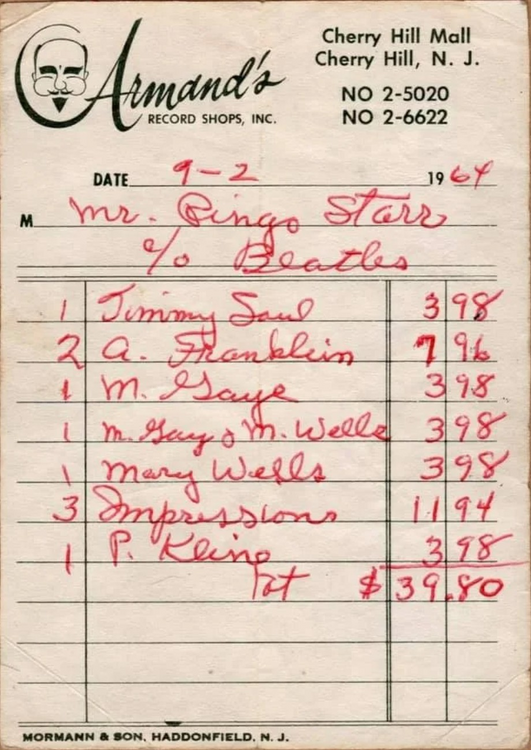 Armand's
RECORD SHOPS, INC.
Cherry Hill Mall
Cherry Hill, N. J.
NO 2-5020
NO 2-6622
DATE 9-2 1964
M Mr. Ringo Starr
c/o Beatles
1 Timmy Saul 3 98
2 A. Franklin 7 96
1 M. Gaye 3 98
1 M. Gay & M. Wells 3 98
1 Mary Wells 3 98
3 Impressions 11 94
1 P. Kling 3 98
Tot $39.80
MORMANN & SON, HADDONFIELD, N. J.